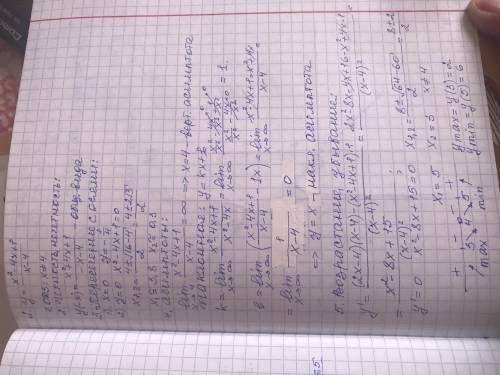 1. y = x²-4x+1 / x-4
1. ООФ: x≠4
2. Чётность, нечётность:
y(-x) = x²+4x+1 / -x-4 общ. вида
3. Пересечение с осями:
1. x=0 y=-1/4
2. y=0 x²-4x+1=0
x₁,₂ = 4±√16-4 / 2 = 4±2√3 / 2
x₁≈3,8 x₂≈0,3
4. Асимптоты:
lim x→4 x²-4x+1 / x-4 = ∞ => x=4 - верт. асимптота
Наклонные: y=kx+b
k = lim x→∞ x²-4x+1 / x²-4x = lim x→∞ x²/x² - 4x/x² + 1/x² / x²/x² - 4x/x² = 1.
b = lim x→∞ (x²-4x+1 / x-4 - 1x) = lim x→∞ x²-4x+1-x²+4x / x-4 =
= lim x→∞ 1 / x-4 = 0
=> y=x - накл. асимптота
5. Возрастание, убывание:
y' = (2x-4)(x-4)-(x²-4x+1)·1 / (x-4)² = 2x²-8x-4x+16-x²+4x-1 / (x-4)² =
= x²-8x+15 / (x-4)²
y'=0 x²-8x+15=0 x₁,₂ = 8±√64-60 / 2 = 8±2 / 2
x₁=5 x₂=3 x≠4
+ - - +
3 4 5
max min
ymax=y(3)=2
ymin=y(5)=6